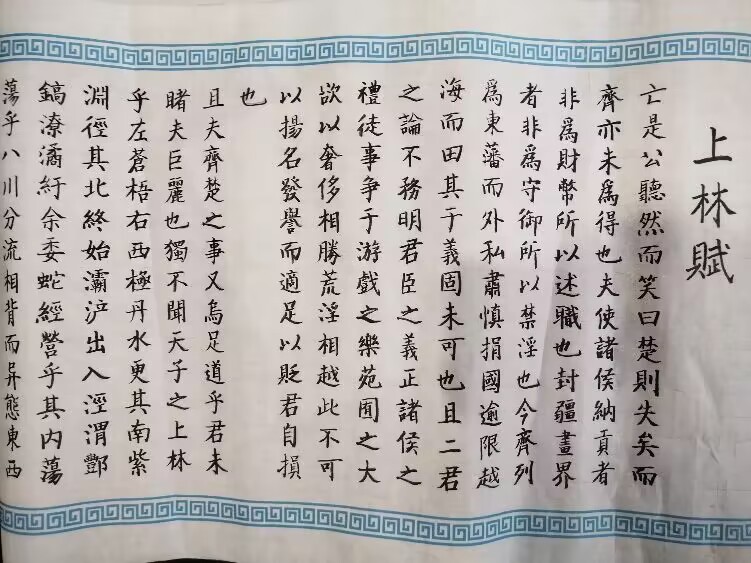 上林賦
亡是公聽然而笑曰楚則失矣而
齊亦未為得也夫使諸侯納貢者
非為財幣所以述職也封疆畫界
者非為守御所以禁淫也今齊列
為東藩而外私肅慎捐國逾限越
海而田其于義固未可也且二君
之論不務明君臣之義正諸侯之
禮徒事争于游戲之樂苑囿之大
欲以奢侈相勝荒淫相越此不可
以揚名發譽而適足以貶君自損
也
且夫齊楚之事又烏足道乎君未
睹夫巨麗也獨不聞天子之上林
乎左蒼梧右西極丹水更其南紫
淵徑其北終始灞浐出入涇渭酆
鎬潦潏紆余委蛇經營乎其内蕩
蕩乎八川分流相背而异態東西